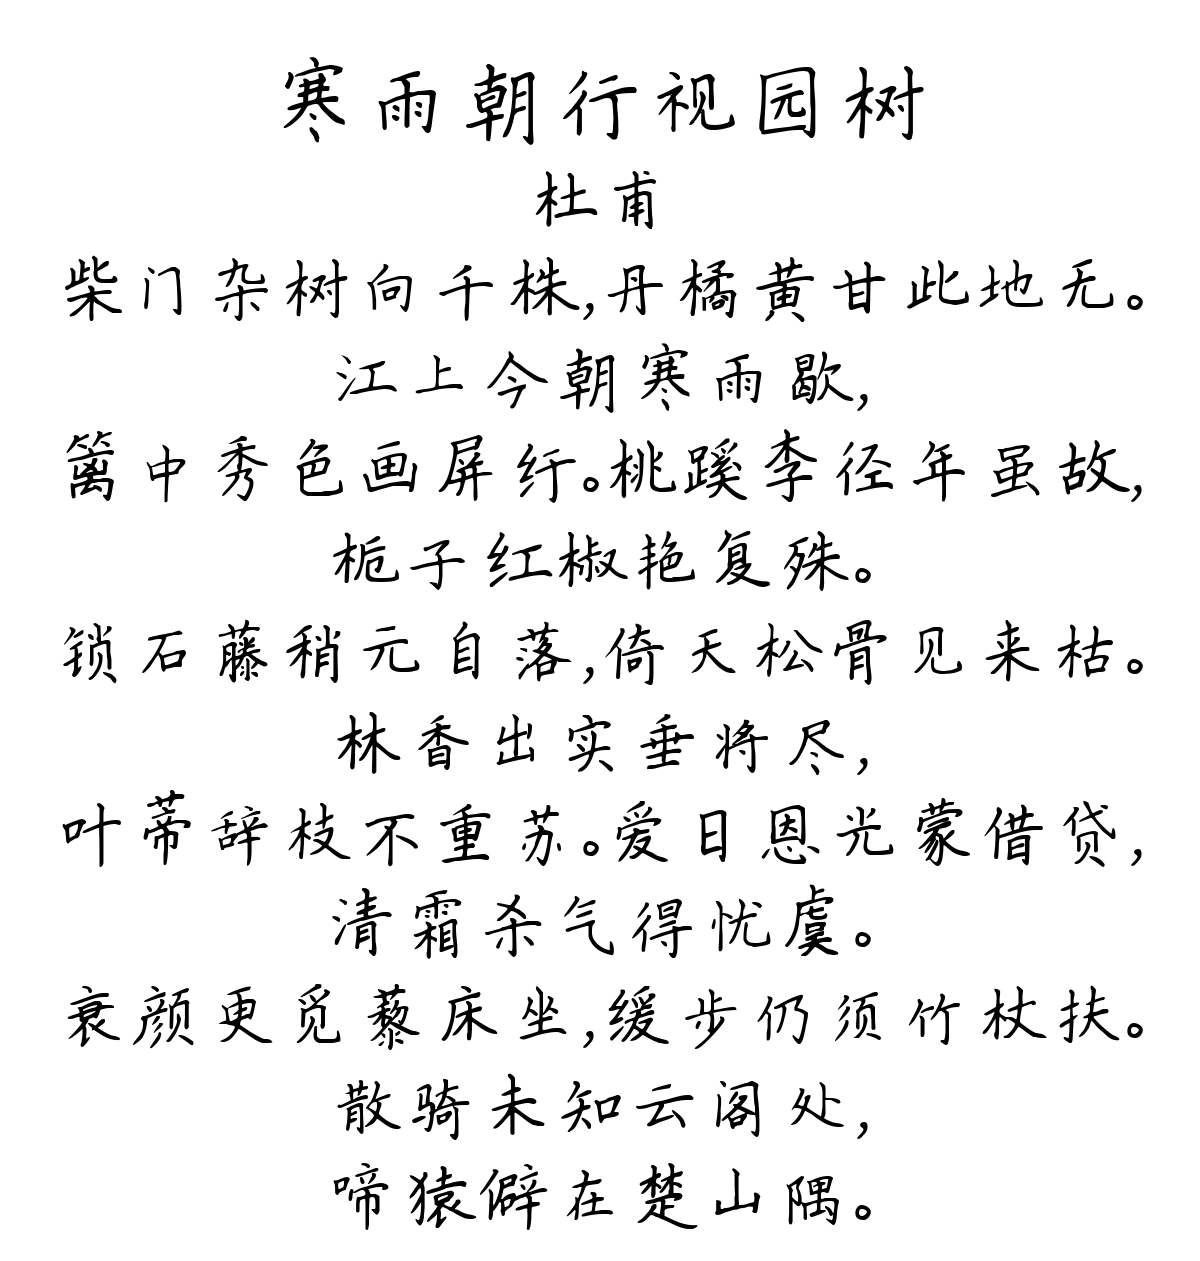 寒雨朝行视园树
杜甫
柴门杂树向千株,丹橘黄甘此地无。
江上今朝寒雨歇,
篱中秀色画屏纡。桃蹊李径年虽故,
栀子红椒艳复殊。
锁石藤稍元自落,倚天松骨见来枯。
林香出实垂将尽,
叶蒂辞枝不重苏。爱日恩光蒙借贷,
清霜杀气得忧虞。
衰颜更觅藜床坐,缓步仍须竹杖扶。
散骑未知云阁处,
啼猿僻在楚山隅。